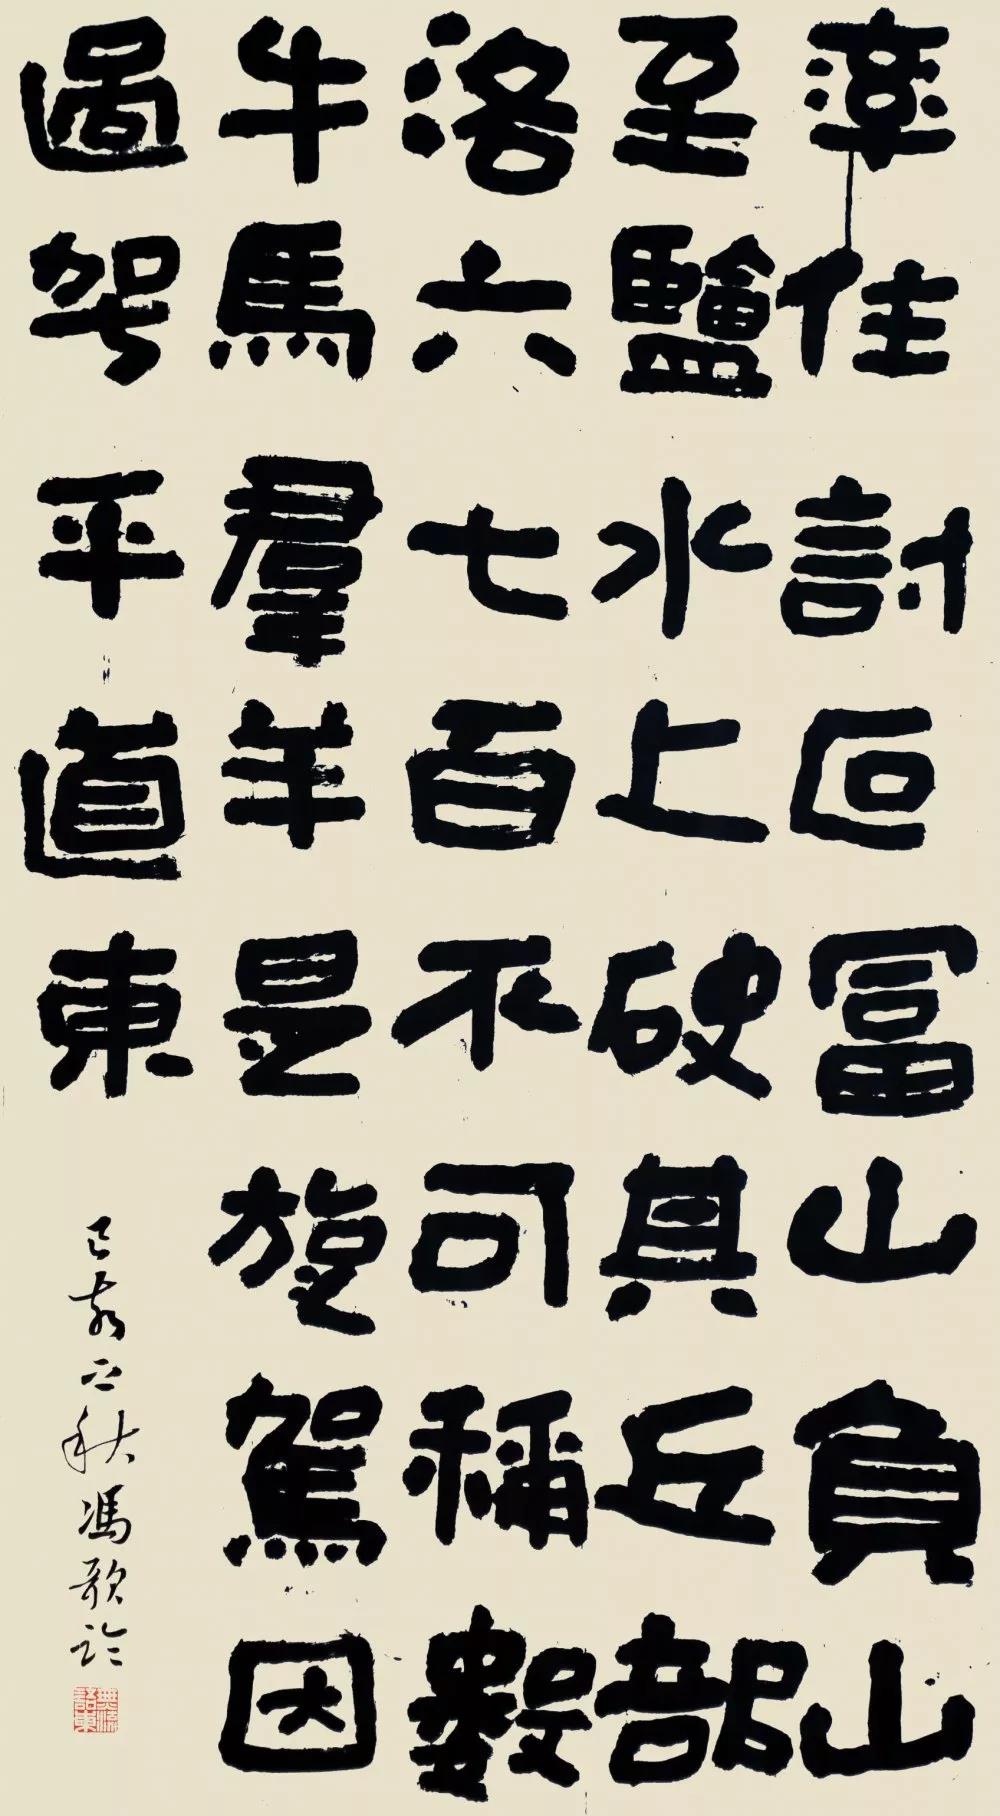 率住討叵富山負山
至鹽水上破其丘部
洛六七百不可稱數
牛馬羣羊是旋駕因
過挐平道東
己亥之秋馮歌